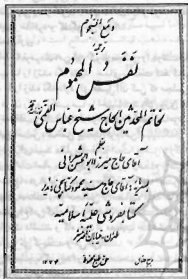 دمع السجوم
ترجمهٔ
نفس المهموم
خاتم المحدثین الحاج شیخ عباس القمی
بقلم
آقای حاج میرزا ابوالحسن شعرانی
بسرمایه آقای حاج سید محمود کتابچی
کتابفروشی علمیه اسلامیه
طهران، خیابان